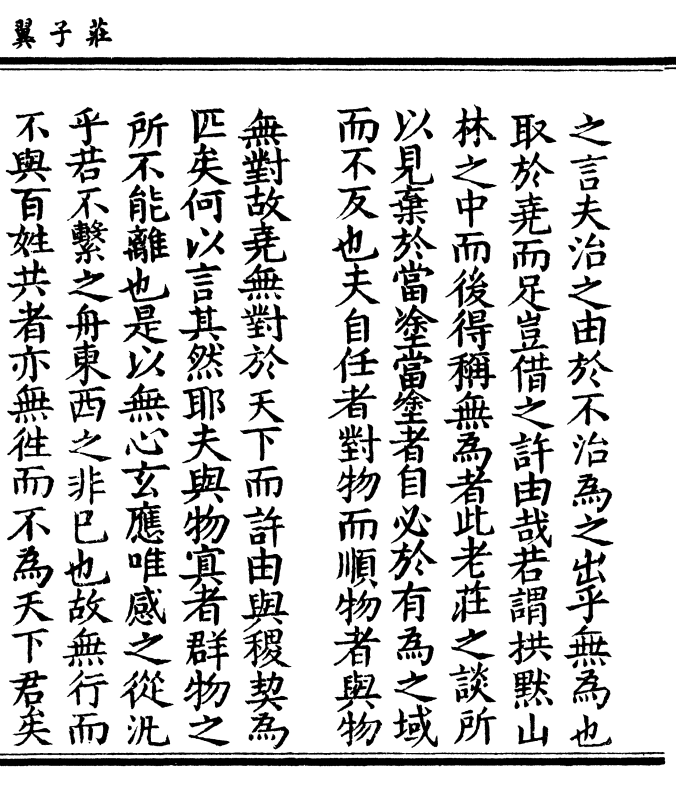 莊子翼
之言夫治之由於不治為之出乎無為也
取於堯而足豈借之許由哉若謂拱默山
林之中而後得稱無為者此老莊之談所
以見棄於當塗當塗者自必於有為之域
而不反也夫自任者對物而順物者與物
無對故堯無對於天下而許由與稷契為
匹矣何以言其然耶夫與物冥者群物之
所不能離也是以無心玄應唯感之從汎
乎若不繫之舟東西之非巳也故無行而
不與百姓共者亦無徃而不為天下君矣